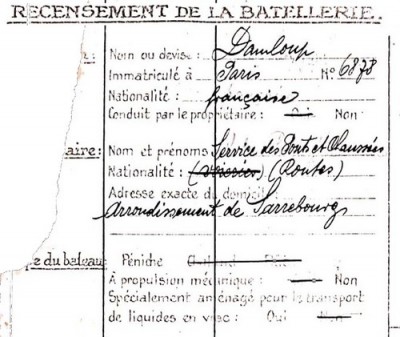 RECENSEMENT DE LA BATELLERIE.
re: Nom ou devise: Damloup
Immatriculé à Paris No 6878
Nationalité: française
Conduit par le propriétaire: Oui Non
aire: Nom et prénoms Service des Ponts et Chaussées
Nationalité: (Routes)
Adresse exacte du domicile
Arrondissement de Sarrebourg
pe du bateau: Péniche
À propulsion mécanique: Non
Spécialement aménagé pour le transport
de liquides en vrac: Oui Non